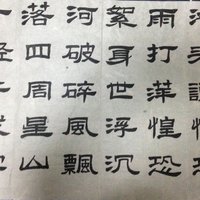 雨打萍惶恐
絮身世浮沉
河破碎風飄
落四周星山